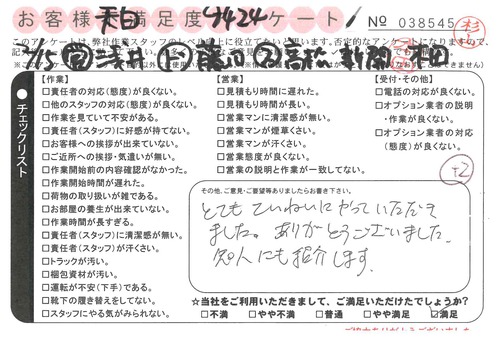 お客様満足度アンケート
№ 038545
このアンケートは、弊社作業スタッフのレベル向上に役立てたいと思います。
【作業】
□責任者の対応(態度)が良くない。
□他のスタッフの対応(態度)が良くない。
□作業を見ていて不安がある。
□責任者(スタッフ)に好感が持てない。
□お客様への挨拶が出来ていない。
□ご近所への挨拶・気遣いが無い。
□作業開始前の内容確認がなかった。
□作業開始時間が遅れた。
□荷物の取り扱いが雑である。
□お部屋の養生が出来ていない。
□作業時間が長すぎる。
□責任者(スタッフ)に清潔感が無い。
□責任者(スタッフ)が汗くさい。
□トラックが汚い。
□梱包資材が汚い。
□運転が不安(下手)である。
□靴下の履き替えをしてない。
□スタッフにやる気がみられない。
【営業】
□見積もり時間に遅れた。
□見積もり時間が長い。
□営業マンに清潔感が無い。
□営業マンが煙草くさい。
□営業マンが汗くさい。
□営業態度が良くない。
□営業の説明と作業が一致してない。
【受付・その他】
□電話の対応が良くない。
□オプション業者の説明
・作業が良くない。
□オプション業者の対応
(態度)が良くない。
チェックリスト
+2
その他、ご意見・ご要望等ありましたらお書き下さい。
とてもていねいにやっていただき
ました。ありがとうございました。
知人にも紹介します。
☆当社をご利用いただきまして、ご満足いただけたでしょうか?
□不満 □やや不満 □普通 □やや満足 ☑満足